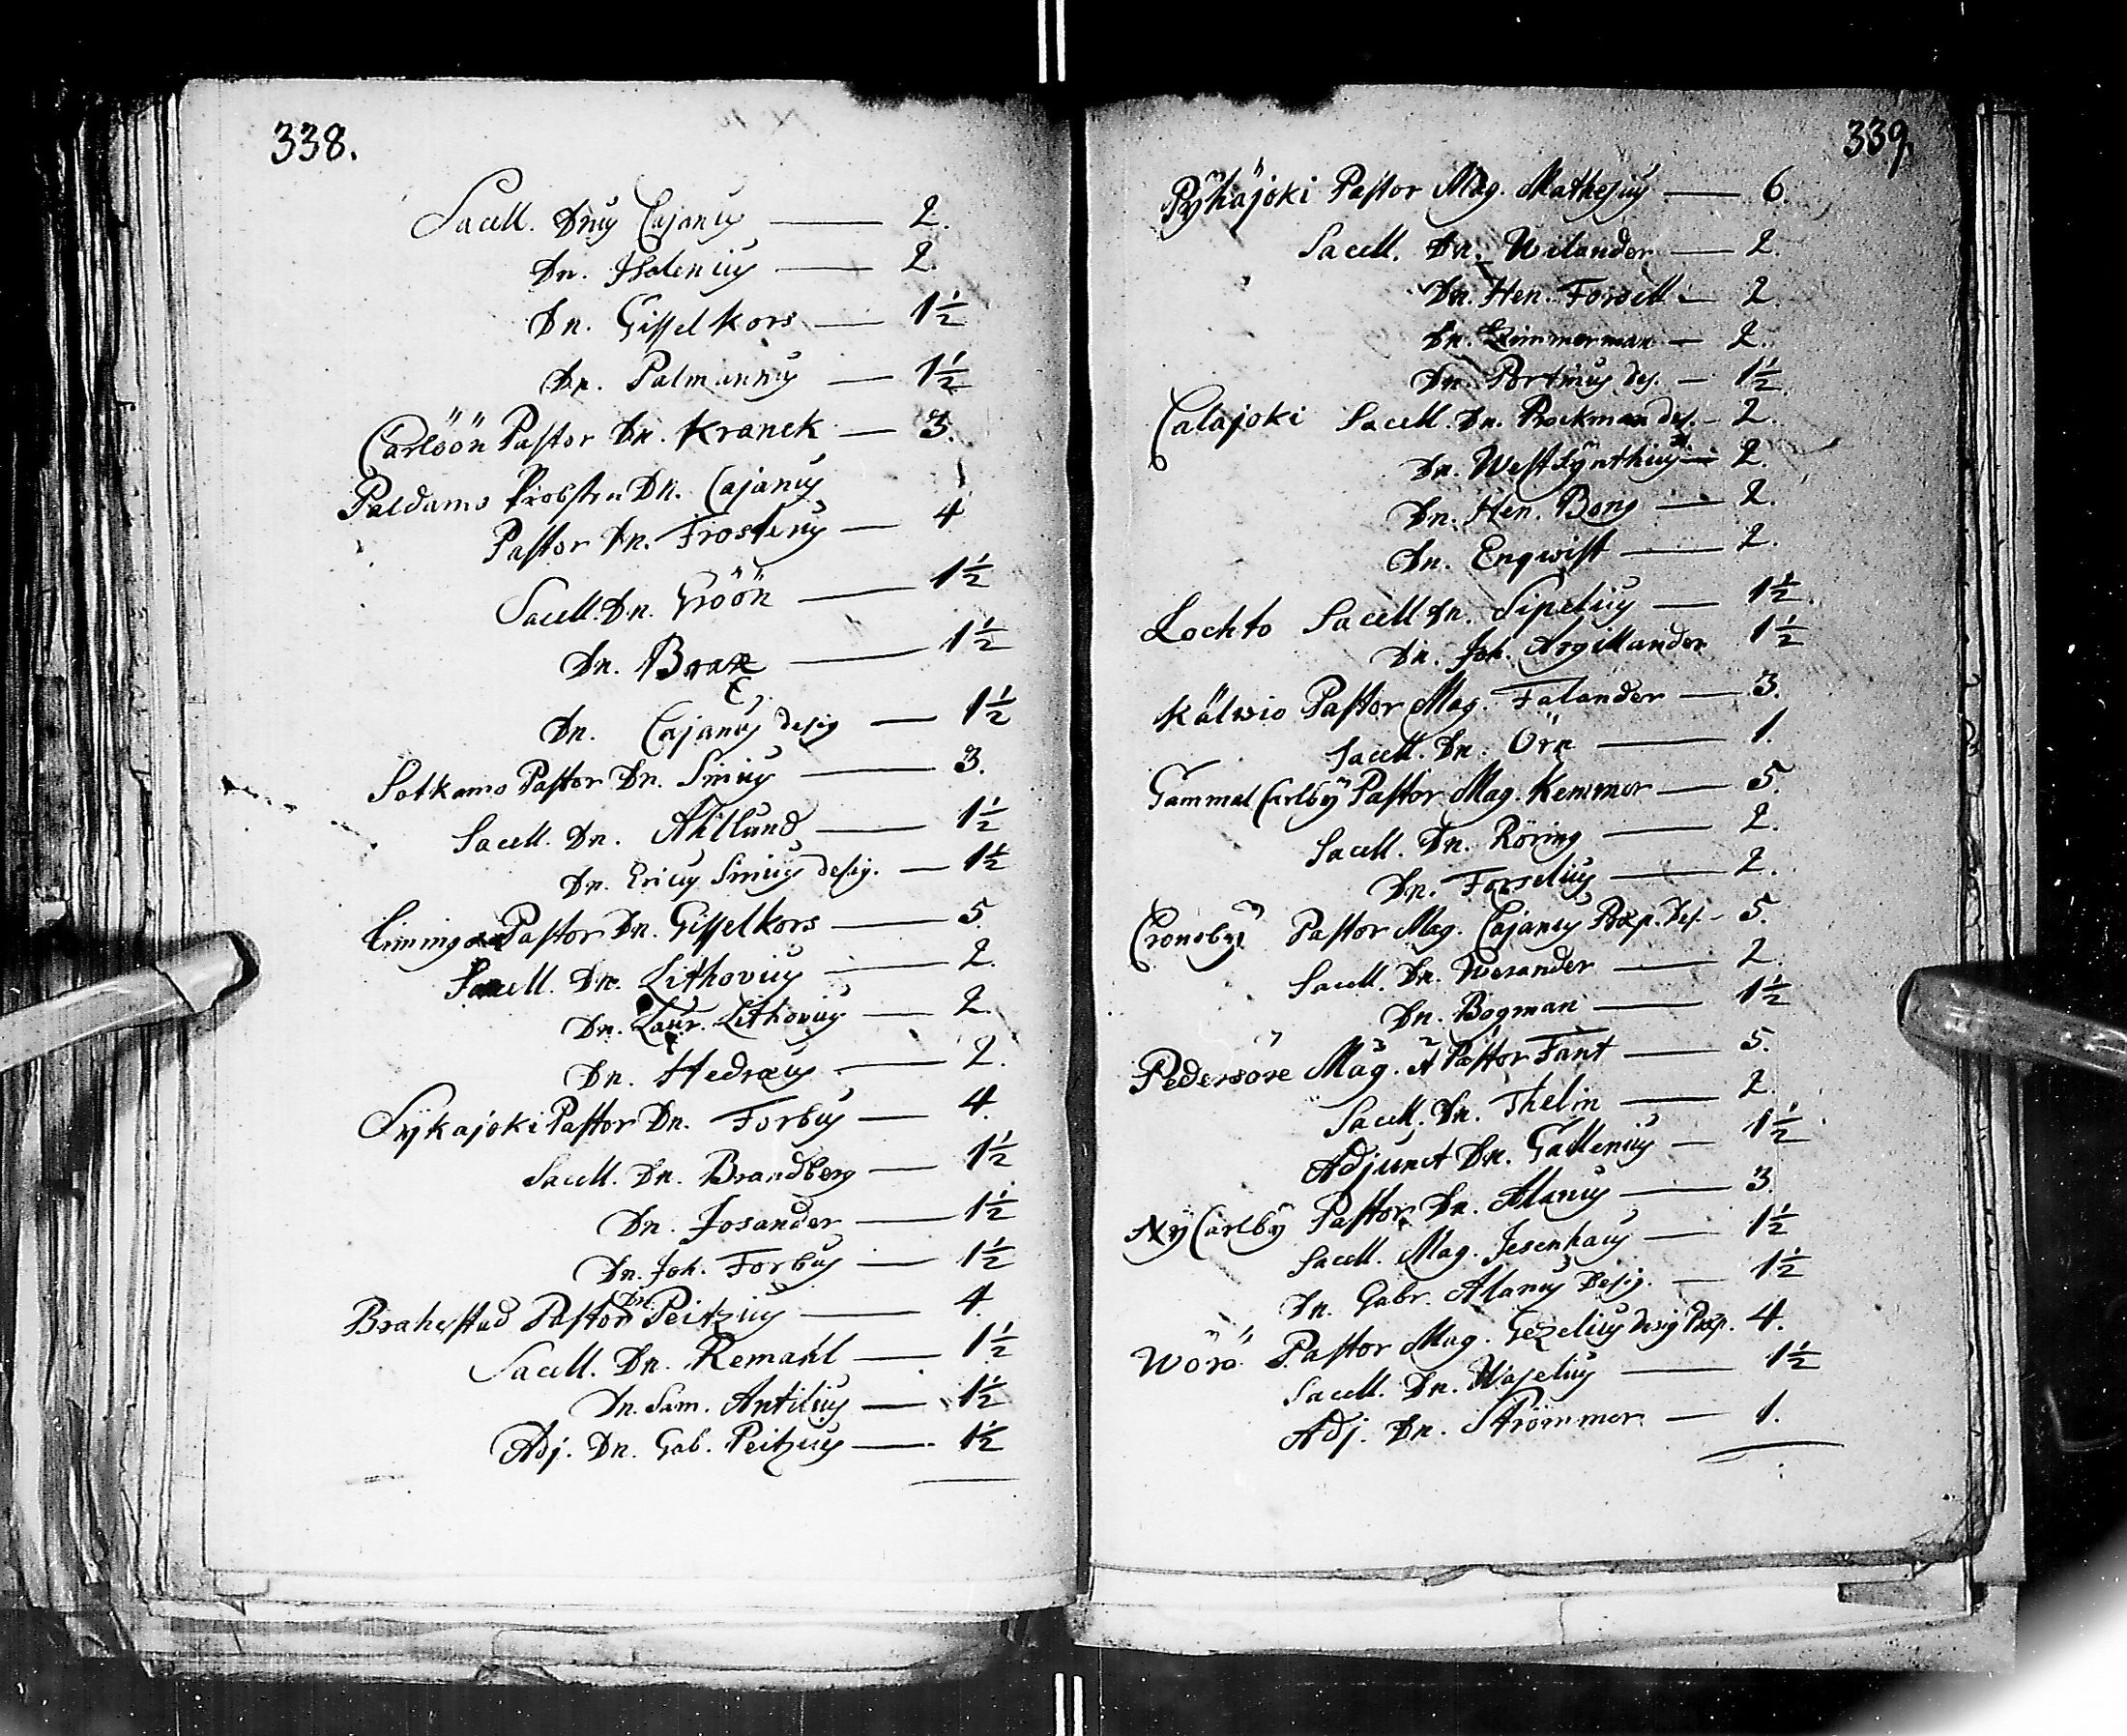 338.
Sacell. Dnus Cajanus — 2.
Dn. Holenius — 2.
Dn. Gisselkors — 1½
Dn. Palmannus — 1½
Carlöön Pastor Dn. Kranck — 3.
Paldamo Probstn Dn. Cajanus
Pastor Dn. Frosterus — 4
Sacell. Dn. Gröön — 1½
Dn. Brax — 1½
Dn. Cajanus desig — 1½
Sotkamo Pastor Dn. Sinius — 3.
Sacell. Dn. Ahllund — 1½
Dn. Ericus Sinius desig. — 1½
Limingo Pastor Dn. Gisselkors — 5.
Sacell. Dn. Lithovius — 2.
Dn. Laur. Lithovius — 2.
Dn. Hedræus — 2.
Sykajoki Pastor Dn. Forbus — 4.
Sacell. Dn. Brandberg — 1½
Dn. Josander — 1½
Dn. Joh. Forbus — 1½
Brahestad Pastor Dn. Peitzius — 4
Sacell. Dn. Remahl — 1½
Dn. Sam. Antilius — 1½
Adj. Dn. Gab. Peitzius — 1½
339.
Pyhäjoki Pastor Mag. Mathesius — 6.
Sacell. Dn. Wilander — 2.
Dn. Hen. Forsell — 2.
Dn. Zimmerman — 2.
Dn. Portinus des. — 1½
Calajoki Sacell. Dn. Brockman des. — 2.
Dn. Westzynthius — 2.
Dn. Hen. Bong — 2.
Dn. Enqwist — 2.
Lochto Sacell. Dn. Sipelius — 1½
Dn. Joh. Argillander 1½
Kälwio Pastor Mag. Falander — 3.
Sacell. Dn. Örn — 1.
Gammal Carlbÿ Pastor Mag. Kemmer — 5.
Sacell. Dn. Röring — 2.
Dn. Forselius — 2.
Cronobÿ Pastor Mag. Cajanus Præp. Des. — 5.
Sacell. Dn. Werander — 2.
Dn. Bogman — 1½
Pedersöre Mag. & Pastor Fant — 5.
Sacell. Dn. Thelin — 2.
Adjunct Dn. Gallenius — 1½
Nÿ Carlbÿ Pastor Dn. Alanus — 3.
Sacell. Mag. Jesenhaus — 1½
Dn. Gabr. Alanus Desig. — 1½
Wörå Pastor Mag. Gezelius desig Præp. 4.
Sacell. Dn. Waselius — 1½
Adj. Dn. Strömmer — 1.